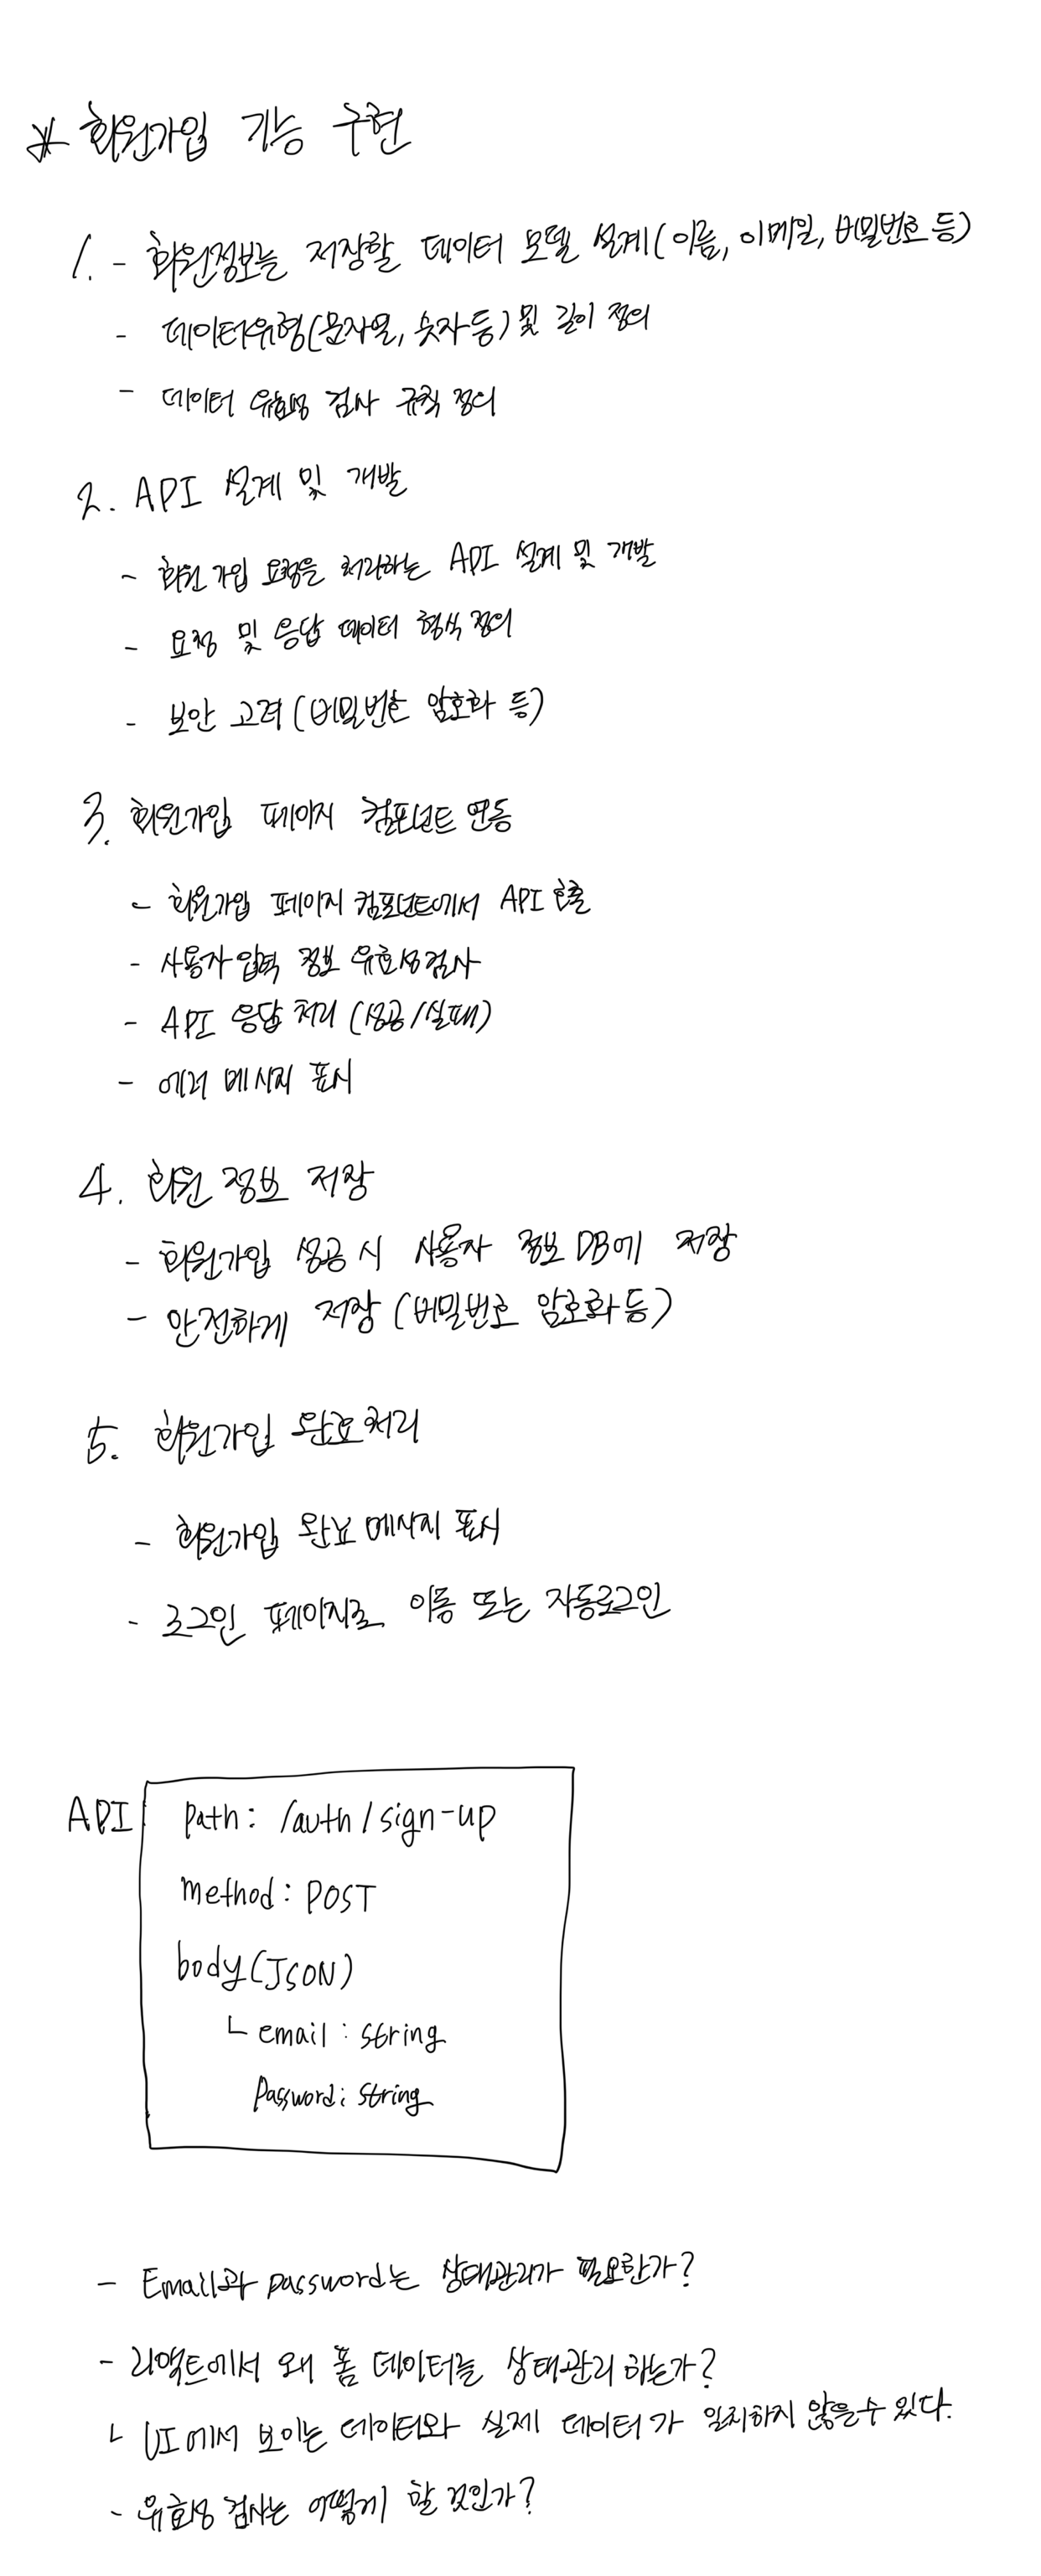 * 회원가입 기능 구현
1. - 회원정보를 저장할 데이터 모델 설계(이름, 이메일, 비밀번호 등)
- 데이터유형(문자열, 숫자 등) 및 길이 정의
- 데이터 유효성 검사 규칙 정의
2. API 설계 및 개발
- 회원 가입 요청을 처리하는 API 설계 및 개발
- 요청 및 응답 데이터 형식 정의
- 보안 고려 (비밀번호 암호화 등)
3. 회원가입 페이지 컴포넌트 연동
- 회원가입 페이지 컴포넌트에서 API 호출
- 사용자 입력 정보 유효성 검사
- API 응답 처리 (성공/실패)
- 에러 메시지 표시
4. 회원 정보 저장
- 회원가입 성공 시 사용자 정보 DB에 저장
- 안전하게 저장 (비밀번호 암호화 등)
5. 회원가입 완료처리
- 회원가입 완료 메시지 표시
- 로그인 페이지로 이동 또는 자동로그인
API
path: /auth/sign-up
method: POST
body(JSON)
└ email: string
Password: string
- Email과 password는 상태관리가 필요한가?
- 리액트에서 왜 폼 데이터를 상태관리 하는가?
└ UI에서 보이는 데이터와 실제 데이터가 일치하지 않을 수 있다.
- 유효성 검사는 어떻게 할 것인가?